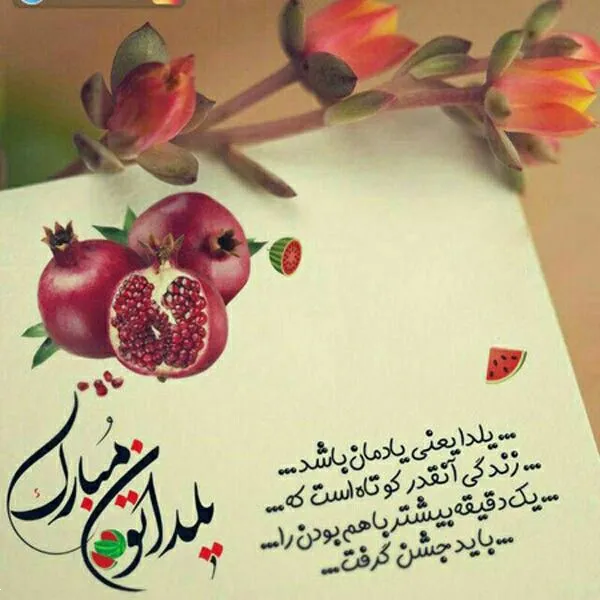 یلداتون مبارک
... یلدا یعنی یادمان باشد ...
... زندگی آنقدر کوتاه است که ...
... یک دقیقه بیشتر با هم بودن را ...
... باید جشن گرفت ...